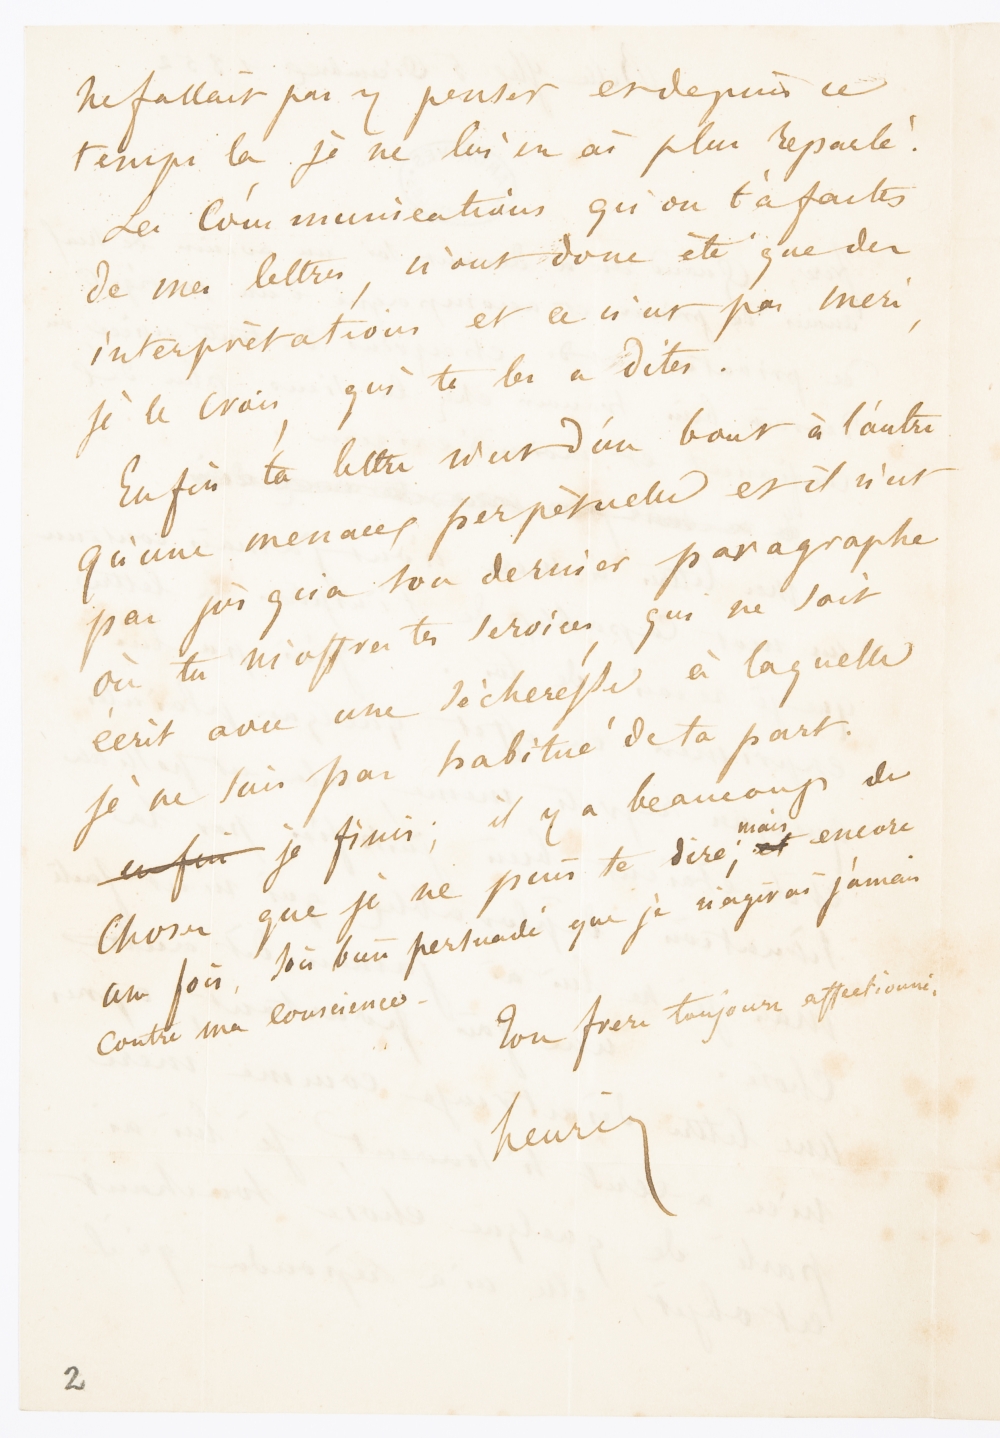 ne fallait pas y penser et depuis ce
temps la je ne lui en ai plus reparlé.
Les Communications qu'on t'a faites
de mes lettres, n'ont donc été que des
interprétations et ce n'est pas meri,
je le crois, qui te les a dites.
Enfin ta lettre n'est d'un bout à l'autre
qu'une menace perpétuelle et il n'est
pas jusqu'a ton dernier paragraphe
où tu m'offres tes services, qui ne soit
écrit avec une sècheresse à laquelle
je ne suis pas habitué de ta part.
enfin je finis; il y a beaucoup de
Choses que je ne puis te dire; et mais encore
une fois, sois bien persuadé que je n'agirai jamais
contre ma conscience -
Ton frere toujours affectionné.
henri
2